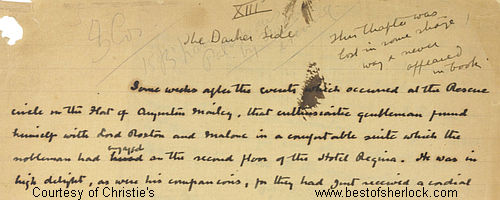 XIII
The Darker Side
This Chapter was
lost in some strange
way & never
appeared
in book.
Some weeks after the events which occurred at the Rescue
circle in the Flat of Mailey, that enthusiastic gentleman found
himself with Lord Roxton and Malone in a comfortable suite which the
nobleman had engaged on the second floor of the Hotel Regina. He was in
high delight, as were his companions, for they had just received a cordial
Courtesy of Christie's
www.bestofsherlock.com